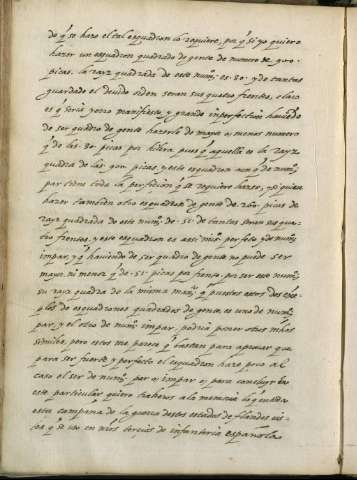 do q̃ se haze el tal esquadron lo requiere, por q̃ si yo quiero
hazer un esquadron quadrado de gente de numero de 900
picas, la rayz quadrada de este num.º es .30. y de tantas
guardado el devido orden seran sus quatro frentes, claro
es q̃ seria yerro manifiesto, y grande imperfection haviendo
de ser quadro de gente hazerlo de mayor o menor numero
q̃ de las .30. picas por hilera pues q̃ aquella es la rayz
quadra de las 900 picas, y este esquadron con q̃ de num.º
par tiene toda la perfeçion q̃ se requiere hazer, y si quiero
hazer tambien otro esquadron de gente de picas de
rayz quadrada de este num.º de .51. de tantas seran sus qua-
tro frentes, y este esquadron es assi mis.º perfeto y de num.º
impar, y q̃ haviendo de ser quadro de gente no puede ser
mayor ni menor q̃ de .51. picas por frente, por ser este num.º
su rayz quadra de la misma man.ª q̃ puestos estos dos exẽ-
plos de esquadrones quadrados de gente, es uno de num.º
par, y el otro de num.º impar, podria poner otros m̃chos
similes, pero estos me parece q̃ bastan para aprovar que
para ser fuerte y perfecto el esquadron haze poco al
caso el ser de num.º par o impar, y para concluyr en
este particular quiero traheros a la memoria lo q̃ en
esta campana de la guerra destos estados de flandes vis-
tes q̃ se uso en n̄ros terçios de infanteria española